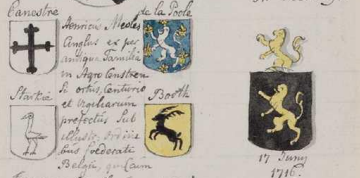 Canostre
de la Poole
Henricus Meoles
Anglus ex per
antiqua Familia
in Agro Cestren
si ortus Centurio
et vigiliarum
profectus sub
illustr. ordini
bus foederati
Belgii
Starkie
Booth
17 Juny
1716.